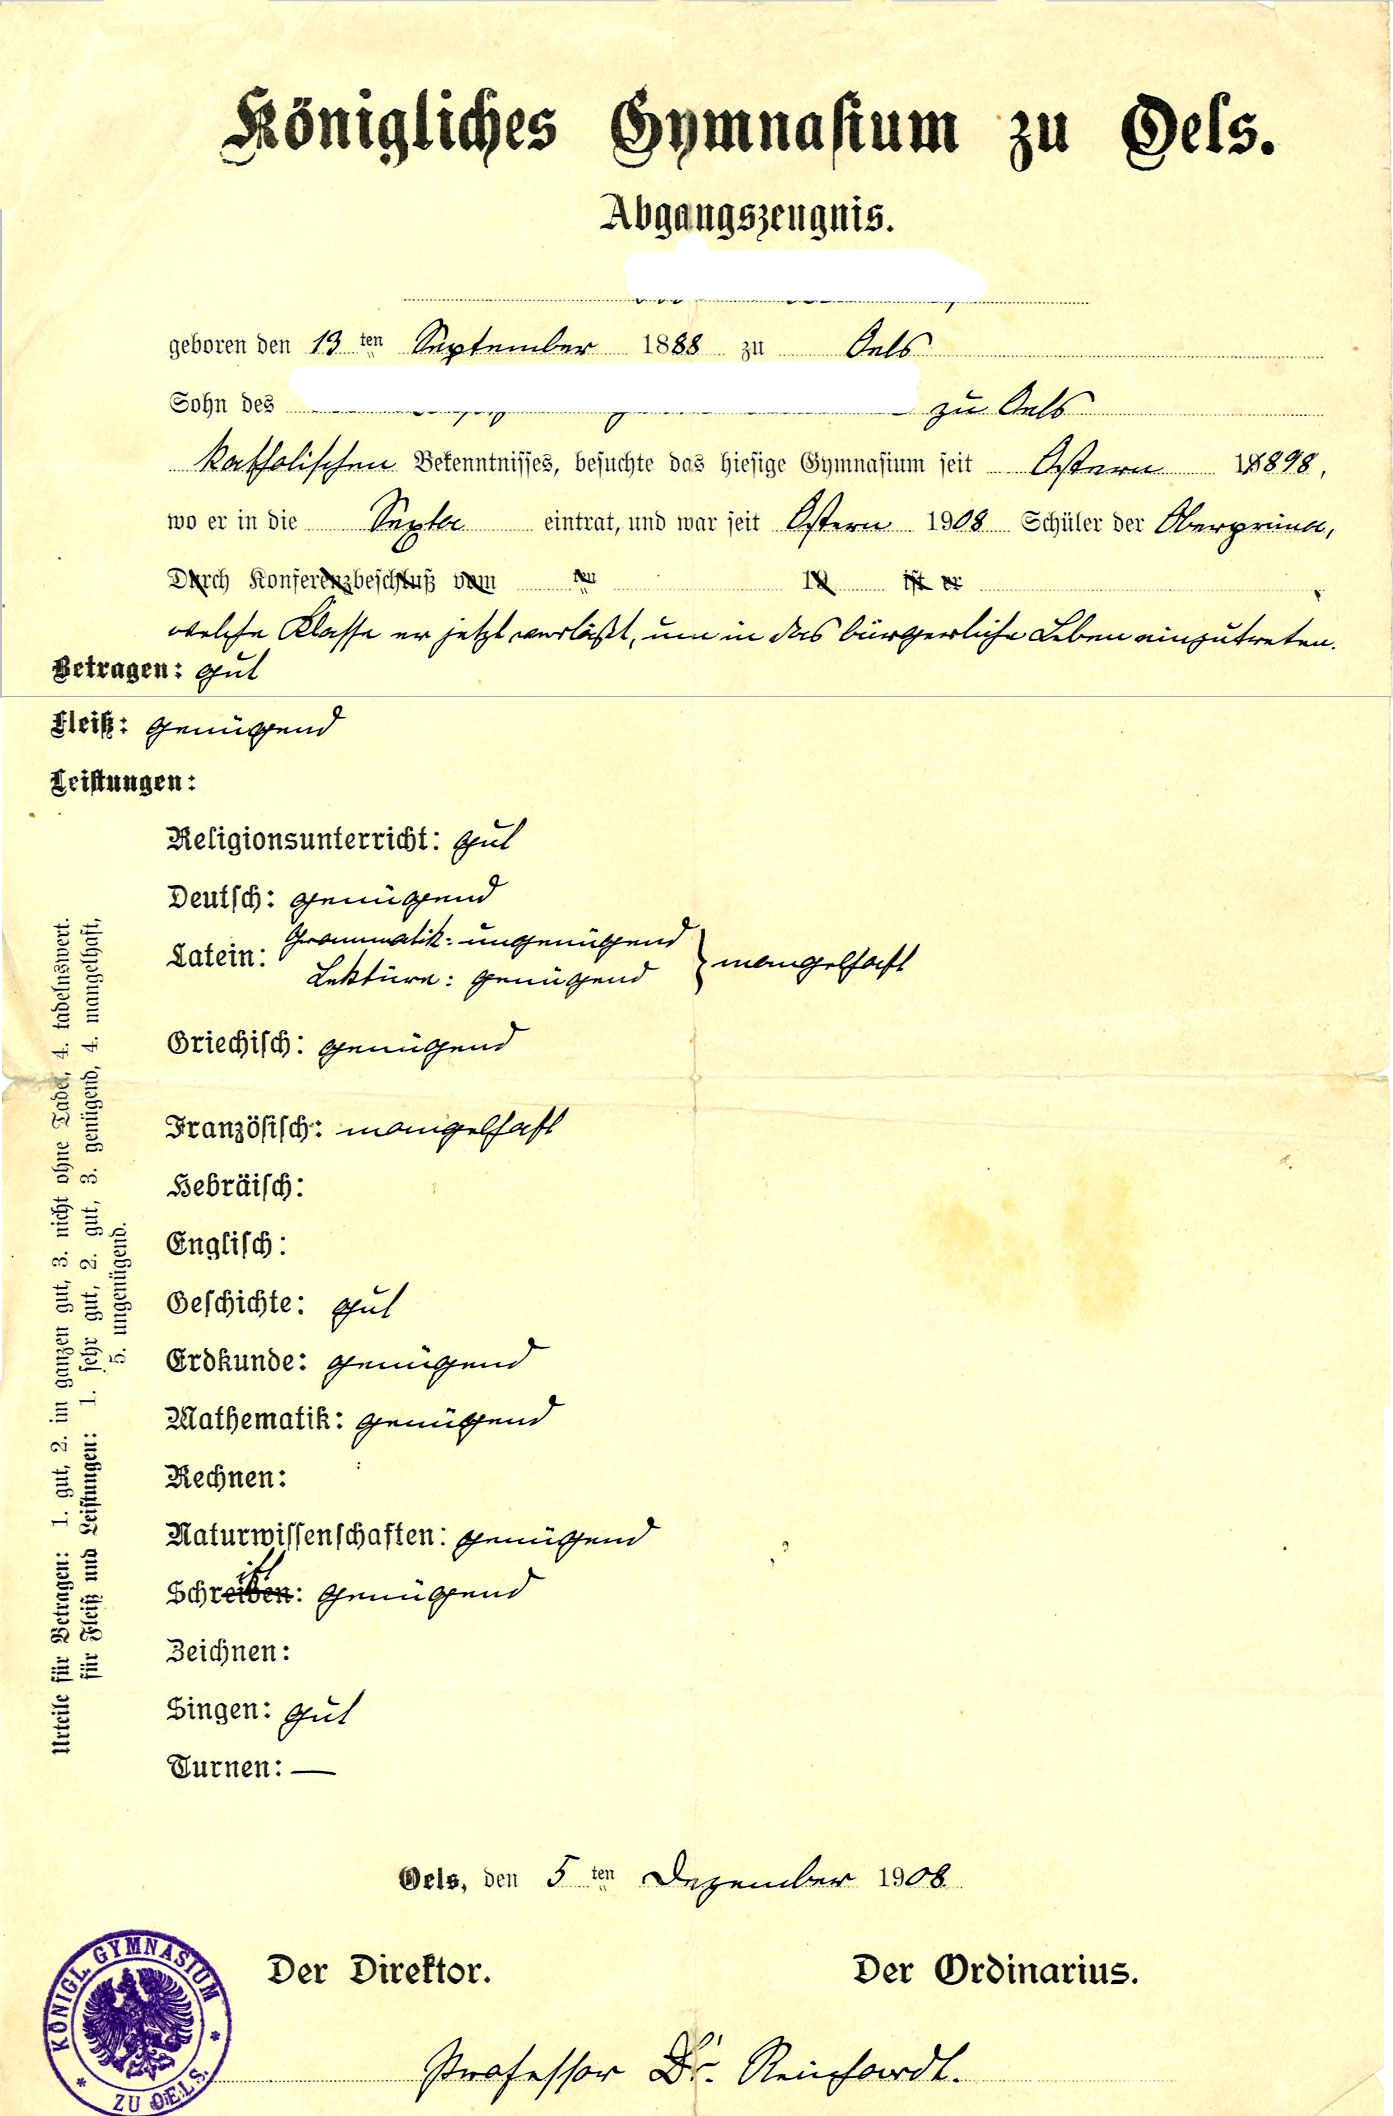 Königliches Gymnasium zu Oels.
Abgangszeugnis.
geboren den 13 ten September 1888 zu Oels
Sohn des zu Oels
katholischen Bekenntnisses, besuchte das hiesige Gymnasium seit Ostern 1898,
wo er in die Sexta eintrat, und war seit Ostern 1908 Schüler der Oberprima,
Durch Konferenzbeschluß vom ten 19 ist er
welche Klasse er jetzt verläßt, um in das bürgerliche Leben einzutreten.
Betragen: gut
Fleiß: genügend
Leistungen:
Religionsunterricht: gut
Deutsch: genügend
Latein: Grammatik: ungenügend
Lektüre: genügend } mangelhaft
Griechisch: genügend
Französisch: mangelhaft
Hebräisch:
Englisch:
Geschichte: gut
Erdkunde: genügend
Mathematik: genügend
Rechnen:
Naturwissenschaften: genügend
Schreiben: ift genügend
Zeichnen:
Singen: gut
Turnen: —
Urteile für Betragen: 1. gut, 2. im ganzen gut, 3. nicht ohne Tadel, 4. tadelnswert.
für Fleiß und Leistungen: 1. sehr gut, 2. gut, 3. genügend, 4. mangelhaft,
5. ungenügend.
Oels, den 5 ten Dezember 1908
Der Direktor. Der Ordinarius.
Professor Dr. Reinhardt.
KÖNIGL. GYMNASIUM * ZU OELS. *